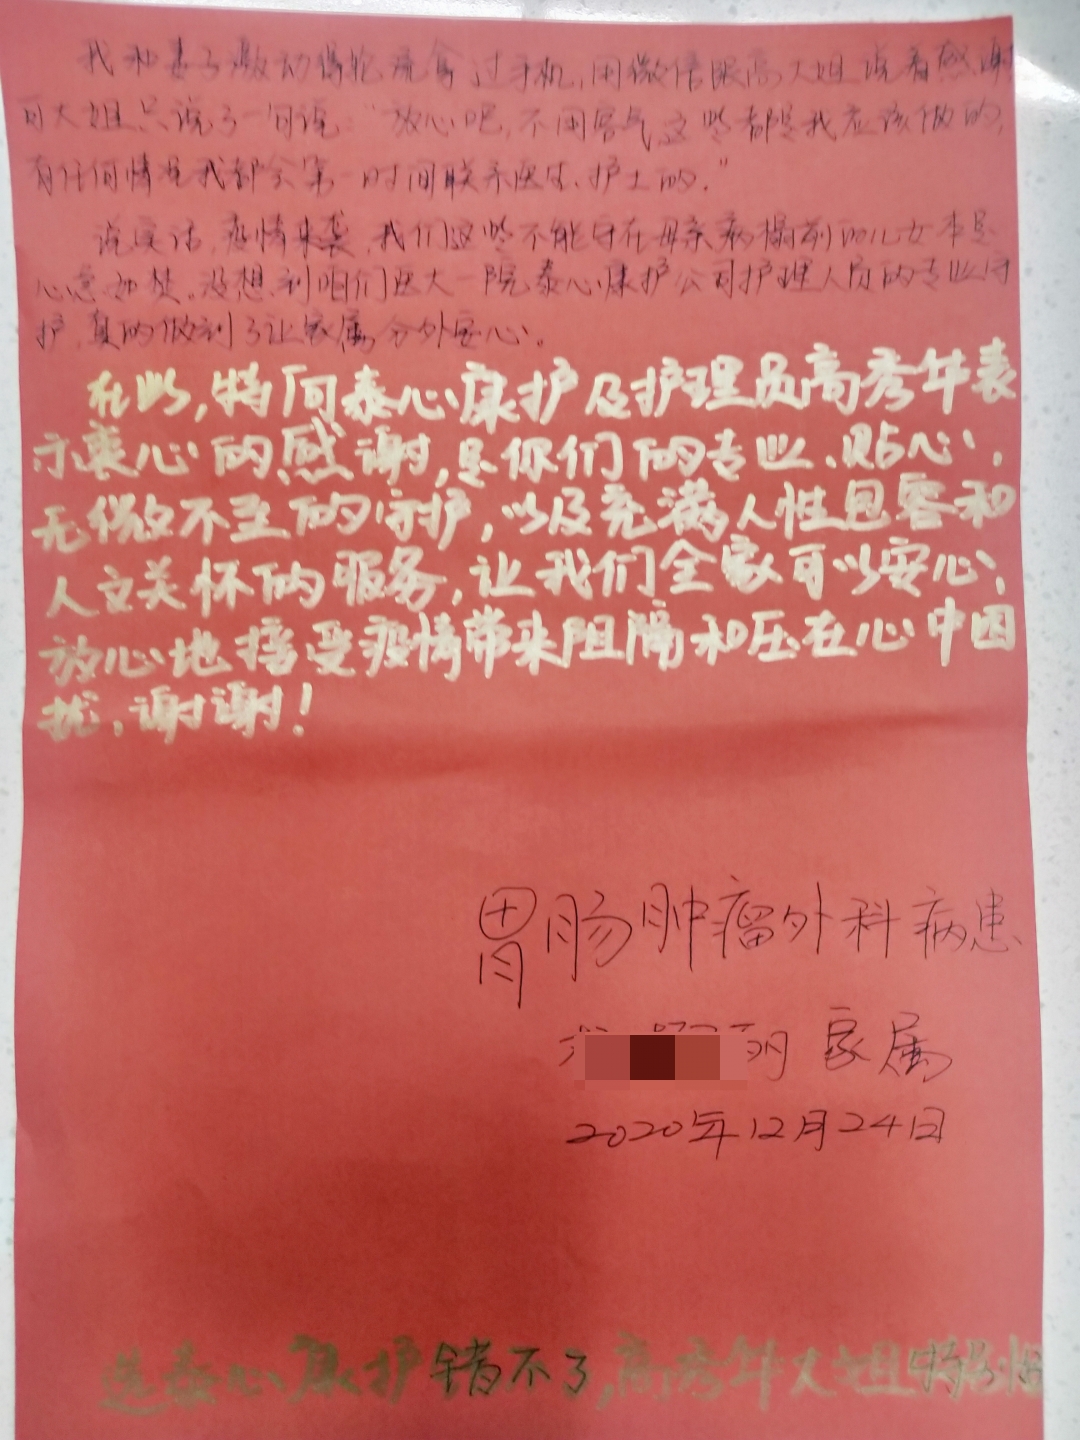 我和妻子激动得轮流拿过手机,用微信跟高大姐说着感谢
可大姐只说了一句说:"放心吧,不用客气,这些都是我应该做的,
有任何情况我都会第一时间联系医生、护士的."
说实话,疫情来袭,我们这些不能守在母亲病榻前的儿女本是
心急如焚。没想到咱们医大一院泰心康护公司护理人员的专业守
护,真的做到了让家属分外安心。
在此,特向泰心康护及护理员高秀华表
示衷心的感谢,是你们的专业、贴心、
无微不至的守护,以及充满人性包容和
人文关怀的服务,让我们全家可以安心、
放心地接受疫情带来阻隔和压在心中困
扰,谢谢!
胃肠肿瘤外科病患
丽家属
2020年12月24日
选泰心康护错不了,高秀华大姐特别